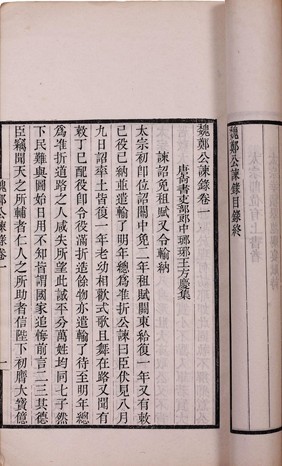 魏鄭公諫錄目錄終
魏鄭公諫錄卷一
唐尚書吏部郎中瑯琊王方慶集
諫詔免租賦又令輸納
太宗初即位詔關中免二年租賦關東給復一年又有敕
已役已納並遣輸了明年總爲準折公諫曰臣伏見八月
九日詔率土皆復一年老幼相歡或歌且舞在路又聞有
敕丁已配役即令役滿折造餘物亦遣輸了待至明年總
爲準折道路之人咸失所望此誠平分萬姓均同七子然
下民難與圖始日用不知皆謂國家追悔前言二三其德
臣竊聞天之所輔者仁人之所助者信陛下初膺大寶億
魏鄭公諫錄卷一
一